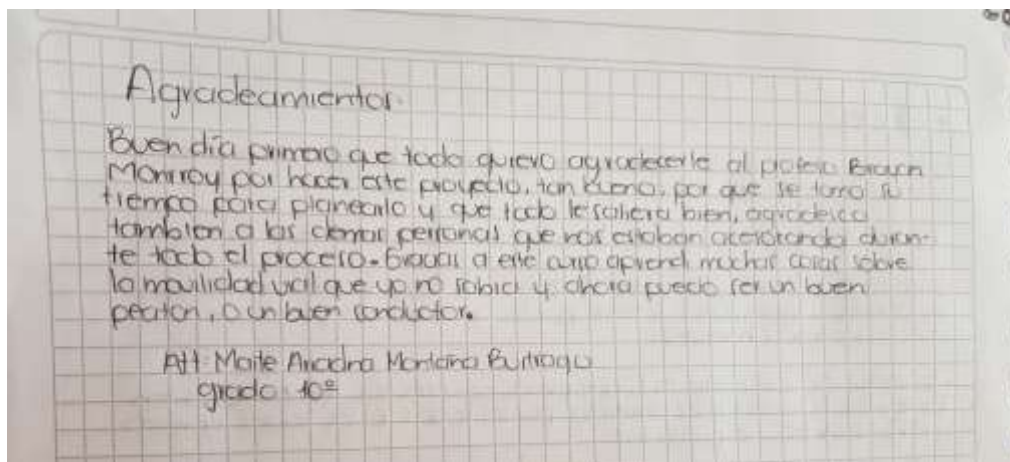 Agradecimientos.
Buen día primero que todo quiero agradecerle al profesor Brayan
Monrroy por hacer este proyecto, tan bueno, por que se tomo su
tiempo para planearlo y que todo le saliera bien, agradezco
tambien a los demas personas que nos estaban acesorando duran-
te todo el proceso. Gracias a este curso aprendi muchas cosas sobre
la movilidad vial que yo no sabia y ahora puedo ser un buen
peaton, o un buen conductor.
Att: Maite Ariadna Montana Buitrago
grado 10º